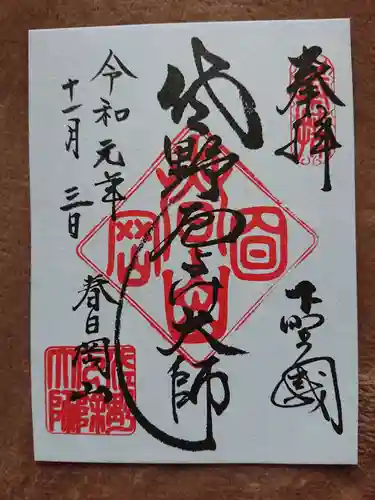 奉拝
下野國
佐野厄よけ大師
令和元年
十一月三日
春日岡山